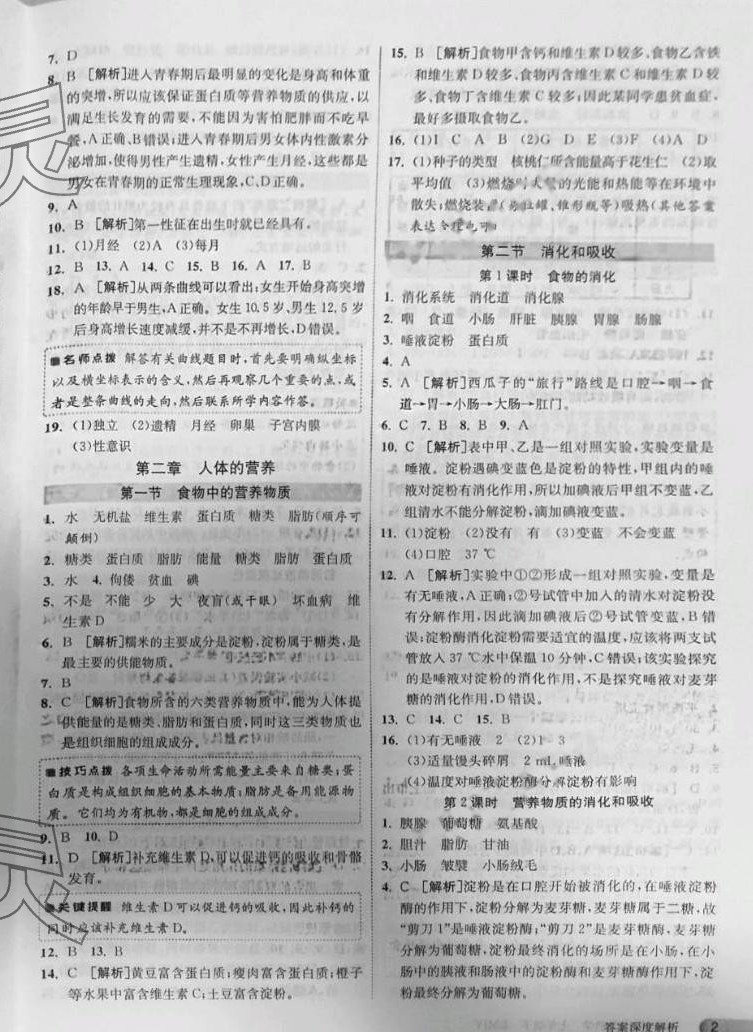 7. D
8. B [解析]进入青春期后最明显的变化是身高和体重
的突增,所以应该保证蛋白质等营养物质的供应,以
满足生长发育的需要,不能因为害怕肥胖而不吃早
餐,A正确、B错误;进入青春期后男女体内性激素分
泌增加,使得男性产生遗精,女性产生月经,这些都是
男女在青春期的正常生理现象,C、D正确。
9. A
10. B [解析]第一性征在出生时就已经具有。
11. (1)月经 (2)卵巢 (3)每月
12. B 13. A 14. C 15. B 16. A 17. B
18. A [解析]从两条曲线可以看出:女生开始身高突增
的年龄早于男生,A正确。女生10.5岁、男生12.5岁
后身高增长速度减缓,并不是不再增长,D错误。
■名师点拨 解答有关曲线题目时,首先要明确纵坐标
以及横坐标表示的含义,然后再观察几个重要的点,或
者是整条曲线的走向,然后联系所学内容作答。
19. (1)独立 (2)遗精 月经 卵巢 子宫内膜
(3)性意识
第二章 人体的营养
第一节 食物中的营养物质
1. 水 无机盐 维生素 蛋白质 糖类 脂肪(顺序可
颠倒)
2. 糖类 蛋白质 脂肪 能量 糖类 脂肪 蛋白质
3. 水 4. 佝偻 贫血 碘
5. 不是 不能 少 大 夜盲(或干眼) 坏血病 维
生素D
6. B [解析]糯米的主要成分是淀粉,淀粉属于糖类,是
最主要的供能物质。
7. B
8. C [解析]食物所含的六类营养物质中,能为人体提
供能量的是糖类、脂肪和蛋白质,同时这三类物质也
是组织细胞的组成成分。
■技巧点拨 各项生命活动所需能量主要来自糖类;蛋
白质是构成组织细胞的基本物质;脂肪是备用能源物
质。它们均为有机物,都是细胞的组成成分。
9. B 10. D
11. D [解析]补充维生素D,可以促进钙的吸收和骨骼
发育。
■关键提醒 维生素D可以促进钙的吸收,因此补钙的
同时应该补充维生素D。
12. B 13. B
14. C [解析]黄豆富含蛋白质;瘦肉富含蛋白质;橙子
等水果中富含维生素C;土豆富含淀粉。
15. B [解析]食物甲含钙和维生素D较多,食物乙含铁
和维生素D较多、食物丙含维生素C和维生素D较
多,食物丁含维生素C较多;因此某同学患贫血症,
最好多摄取食物乙。
16. (1)I C A (2)B G D E (3)F (4)A D
17. (1)种子的类型 核桃仁所含能量高于花生仁 (2)取
平均值 (3)燃烧时火焰的光能和热能等在环境中
散失;燃烧装置(易拉罐、锥形瓶等)吸热(其他答案
表达合理也可)
第二节 消化和吸收
第1课时 食物的消化
1. 消化系统 消化道 消化腺
2. 咽 食道 小肠 肝脏 胰腺 胃腺 肠腺
3. 唾液淀粉 蛋白质
4. A
5. A [解析]西瓜子的“旅行”路线是口腔→咽→食
道→胃→小肠→大肠→肛门。
6. C 7. B 8. B 9. A
10. C [解析]表中甲、乙是一组对照实验,实验变量
是唾液。淀粉遇碘变蓝色是淀粉的特性,甲组内的唾
液对淀粉有消化作用,所以滴加碘液后甲组不变蓝,乙
组清水不能分解淀粉,滴加碘液后变蓝。
11. (1)淀粉 (2)没有 有 (3)变蓝 不会变蓝
(4)口腔 37 ℃
12. A [解析]实验中①②形成一组对照实验,变量是
有无唾液,A正确;②号试管中加入的清水对淀粉没
有分解作用,因此滴加碘液后②号试管变蓝,B错
误;淀粉酶消化淀粉需要适宜的温度,应该将两支试
管放入37 ℃水中保温10分钟,C错误;该实验探究
的是唾液对淀粉的消化作用,不是探究唾液对麦芽
糖的消化作用,D错误。
13. C 14. C 15. B
16. (1)有无唾液 (2)2 1 3
(3)适量馒头碎屑 2 mL唾液
(4)温度对唾液淀粉酶分解淀粉有影响
第2课时 营养物质的消化和吸收
1. 胰腺 葡萄糖 氨基酸
2. 胆汁 脂肪 甘油
3. 小肠 皱襞 小肠绒毛
4. C [解析]淀粉是在口腔开始被消化的,在唾液淀粉
酶的作用下,淀粉分解为麦芽糖,麦芽糖属于二糖,故
“剪刀1”是唾液淀粉酶;“剪刀2”是麦芽糖酶,麦芽糖
分解为葡萄糖,淀粉最终消化的场所是在小肠,在小肠
中的胰液和肠液中的淀粉酶和麦芽糖酶的作用下,淀粉
最终分解为葡萄糖。
答案深度解析 2
灵
灵